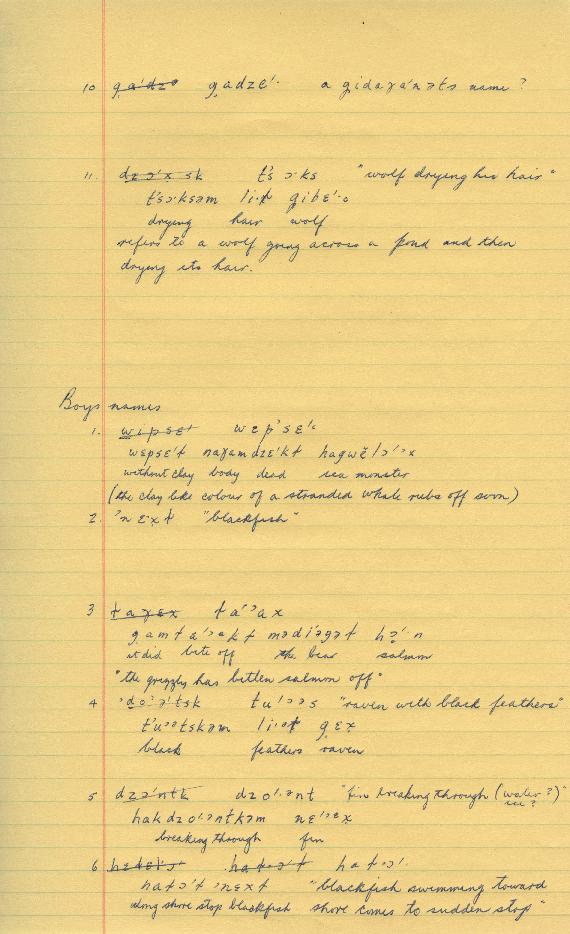 10 g̲a'dzə g̲adzɛ'· a gidaɣa'nəts name?
11. dzɔ'x sk t's ɔ·ks "wolf drying his hair"
t'sɔ·ksəm li·ɫ gibɛ'·o
drying hair wolf
refers to a wolf going across a pond and then
drying its hair.
Boys names
1. wɛpsɛt wɛp'sɛ'ᶜ
wɛpsɛ't naɣamdzɛ'kɫ hagwĕlɔ'ᵓx
without clay body dead sea monster
(the clay like colour of a stranded whale rubs off soon)
2. 'nɛxɫ "blackfish"
3 ɫaɣɛx ɫa'ᵓax
g̲amɫa'ᵓəkɫ mədi'əgəɫ hɔ̣'·n
it did bite off the bear salmon
"the grizzly has bitten salmon off"
4 'do'ə'tsk tu'ᵓəs "raven with black feathers"
t'u'ᵓətskəm li·ɫ g̲ɛx
black feathers raven
5 dzɔ'ntk dzo'·ənt "fin breaking through (water?)"
ice?
hakdzo'·əntkəm nɛ'ᵓɛx
breaking through fin
6 haɫɔ' haɫɔ't haɫɔ'·
haɫɔ'ɫ 'nɛxɫ "blackfish swimming toward
along shore stop blackfish shore comes to sudden stop"